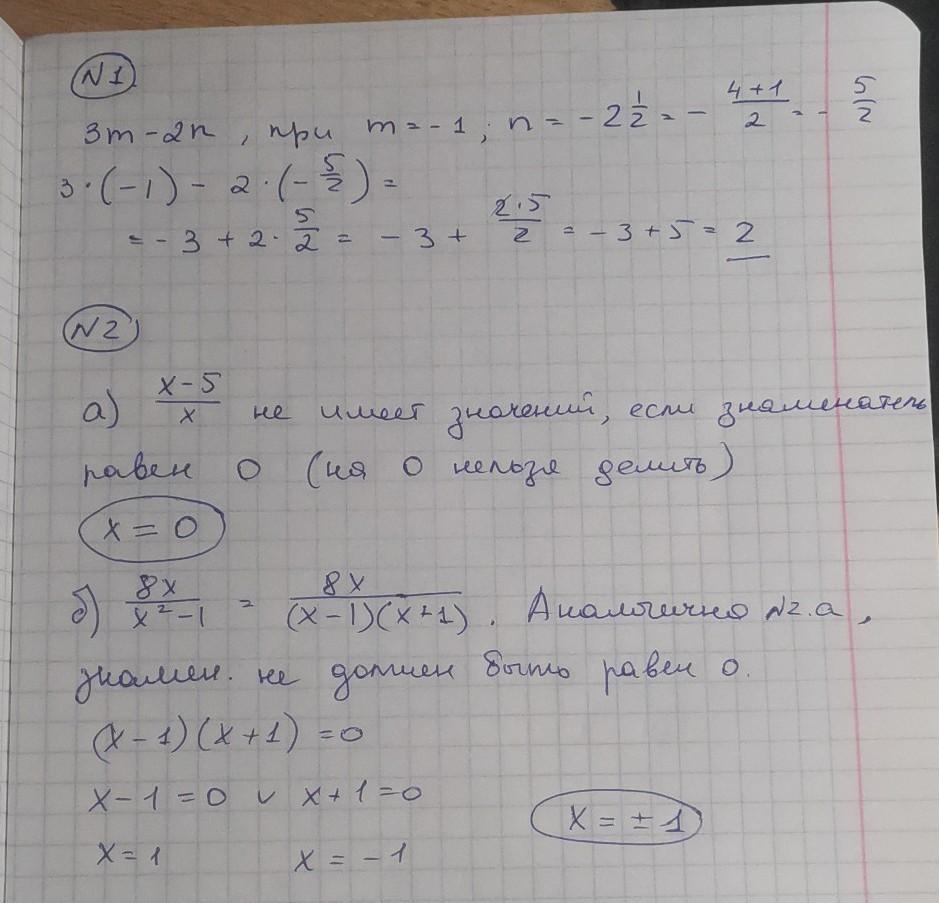 N1
3m - 2n, при m = -1; n = -2 1/2 = - (4+1)/2 = - 5/2
3·(-1) - 2·(- 5/2) =
= -3 + 2· 5/2 = -3 + (2·5)/2 = -3+5 = 2
N2
а) (x-5)/x не имеет значений, если знаменатель
равен 0 (на 0 нельзя делить)
x = 0
б) 8x/(x²-1) = 8x/((x-1)(x+1)). Аналогично N2.а,
знамен. не должен быть равен 0.
(x-1)(x+1) = 0
x-1 = 0 ∨ x+1 = 0
x = 1 x = -1
x = ±1